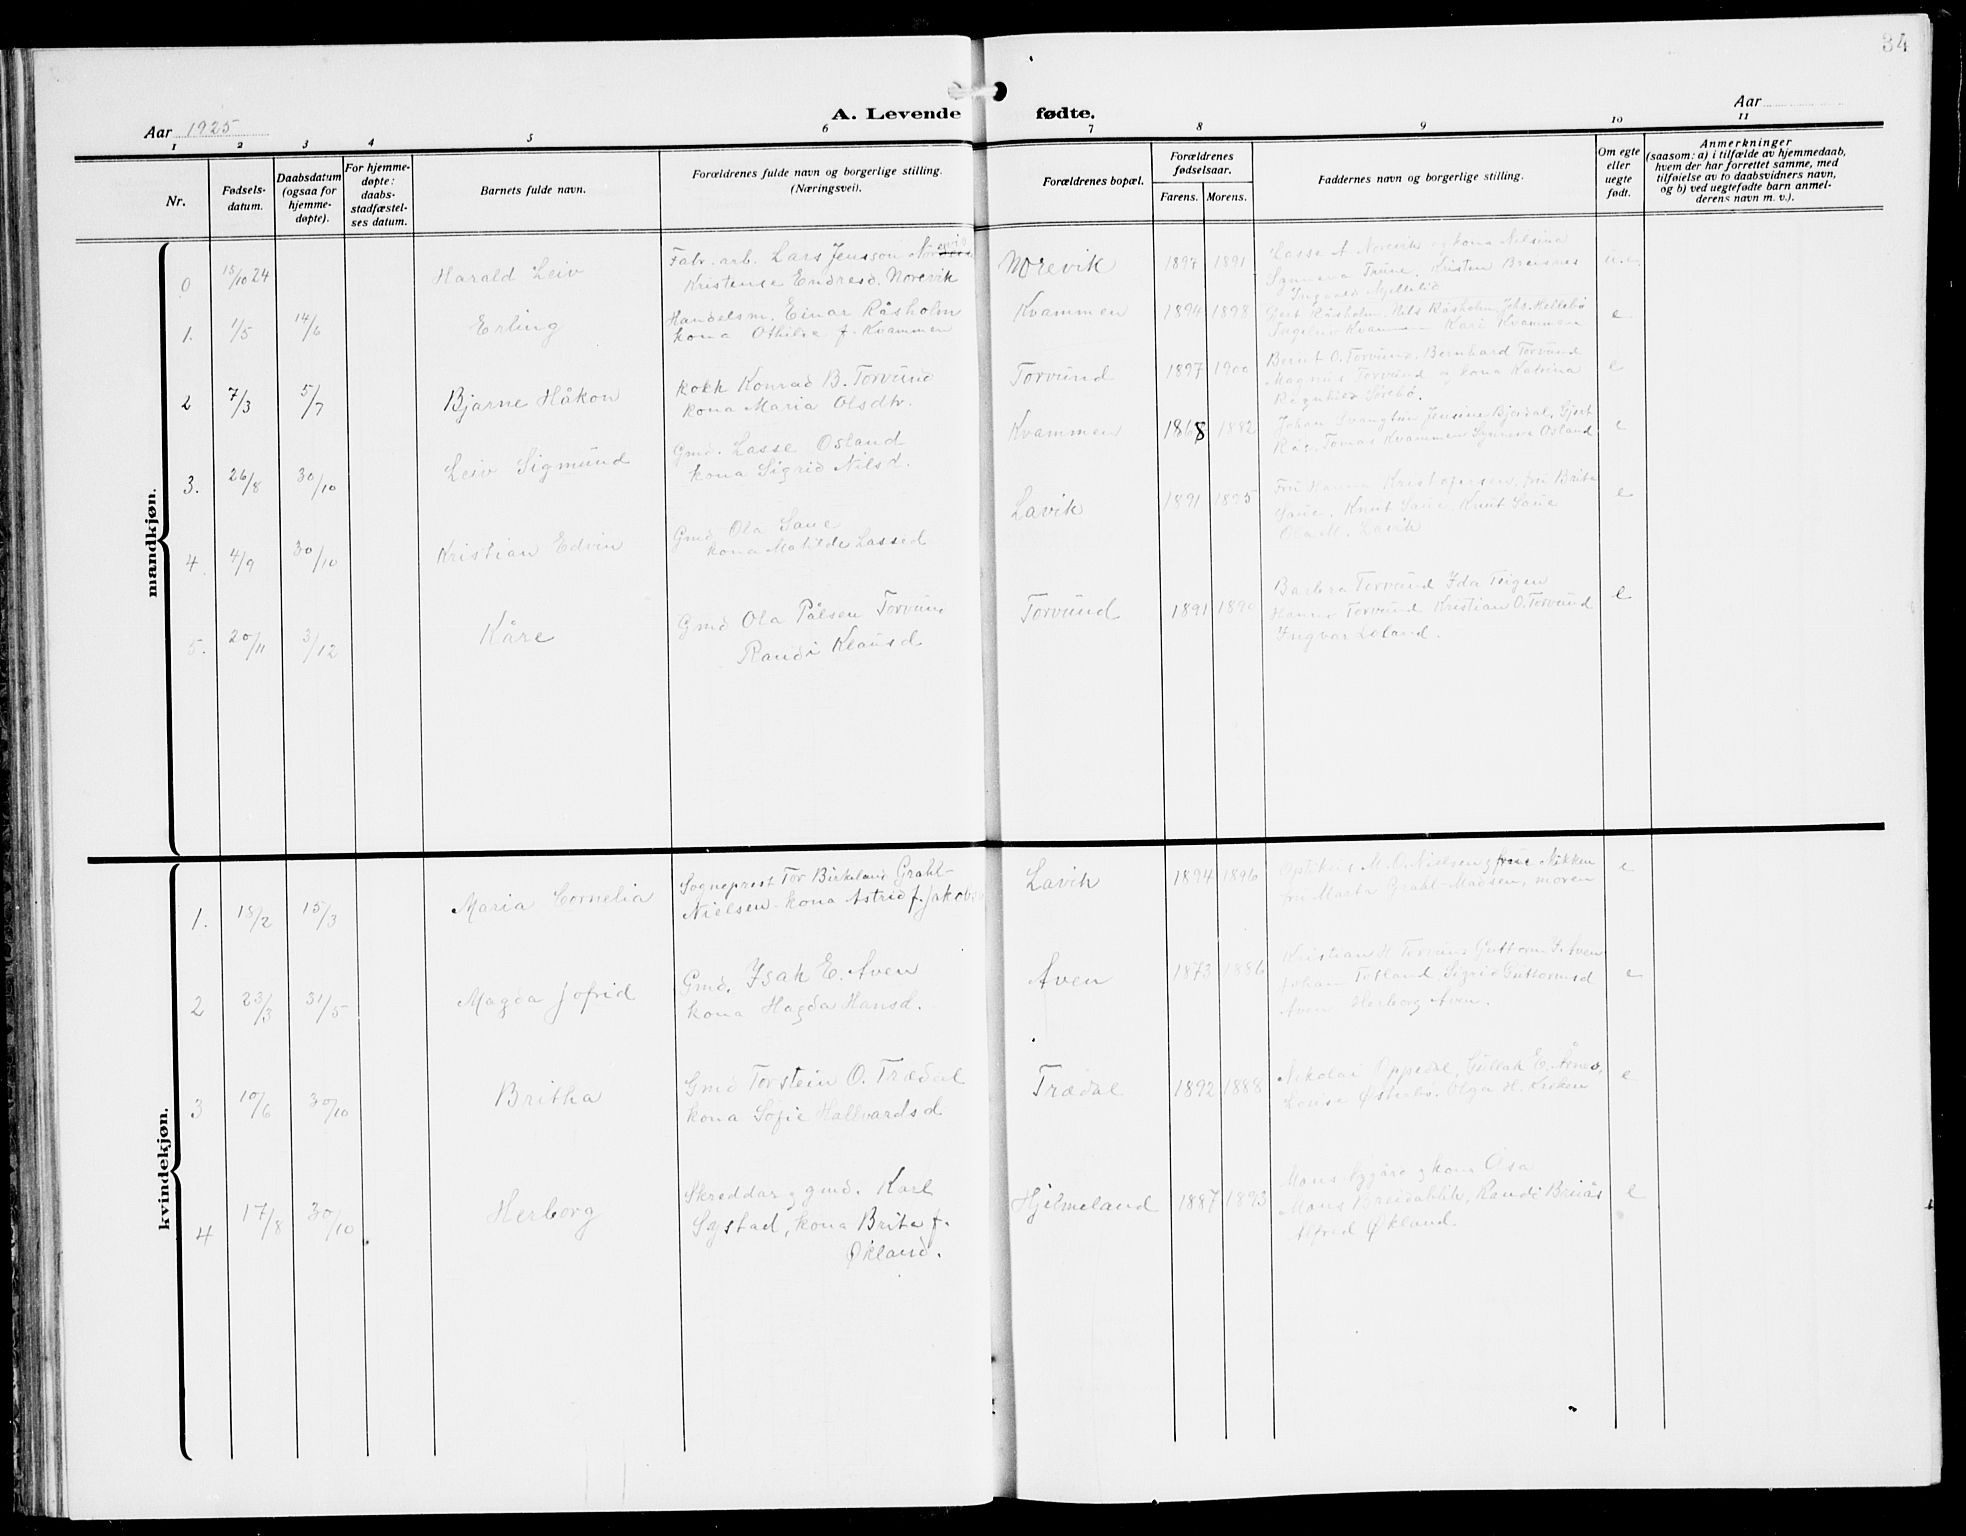 34
A. Levende fødte.
Aar 1925
Aar
1 2 3 4 5 6 7 8 9 10 11
Nr.
Fødsels-
datum.
Daabsdatum
(ogsaa for
hjemme-
døpte).
For hjemme-
døpte:
daabs-
stadfæstel-
ses datum.
Barnets fulde navn.
Forældrenes fulde navn og borgerlige stilling.
(Næringsvei).
Forældrenes bopæl.
Forældrenes
fødselsaar.
Farens. Morens.
Faddernes navn og borgerlige stilling.
Om egte
eller
uegte
født.
Anmerkninger
(saasom: a) i tilfælde av hjemmedaab,
hvem der har forrettet samme, med
tilføielse av to daabsvidners navn,
og b) ved uegtefødte barn anmel-
derens navn m. v.).
mandkjøn.
0 15/10 24 Harald Leiv
Fabr. arb. Lars Jensson
Kristense Endresd. Norevik
Norevik 1897 1891
Lasse A Norevik og kona Nilsina
Synneva Kristen Breisnes
Ingvald
u.e.
1. 1/5 14/6 Erling
Handelsm. Einar Råsholm
kona Othilie f. Kvammen
Kvammen 1894 1898
Gert Råsholm, Nils Råsholm, Johs. Hellebø
Kvammen Kari Kvammen
e
2 7/3 5/7 Bjarne Håkon
kokk Konrad B. Torvund
kona Maria Olsdtr.
Torvund 1897 1900
Bernt O. Torvund, Bernhard Torvund
Magnus Torvund og kona Katrina
Sørebø.
e
3. 26/8 30/10 Leiv Sigmund
Gmd. Lasse Osland
kona Sigrid Nilsd.
Kvammen 1868 1882
Johan Jensine Bjordal, Gjert
Rås. Tomas Kvammen Synneva Osland
e
4. 4/9 30/10 Kristian Edvin
Gmd Ola Saue
kona Matilde Lassed
Lavik 1891 1895
Fru Hanna Kristofersen, fru Brita
Saue, Knut Saue, Knut Saue
Ola M. Lavik
e
5. 20/11 3/12 Kåre
Gmd Ola Pålsen Torvund
Randi Klausd
Torvund 1891 1890
Barbra Torvund Ida Teigen
Hanna Torvund Kristian O. Torvund
Ingvar Loland.
e
kvindekjøn.
1. 18/2 15/3 Maria Cornelia
Sogneprest Tor Birkeland Grahl-
Nielsen. kona Astrid f. Jakobs
Lavik 1894 1896
Optikus M. O. Nielsen og frue Mikken
fru Marta Grahl-Madsen, moren
e
2 23/3 31/5 Magda Jofrid
Gmd. Isak E. Aven
kona Magda Hansd.
Aven 1873 1886
Kristian H Torvund Guttorm I. Aven
Johan Totland Sigrid Guttormsd
Aven Herborg Aven.
e
3 10/6 30/10 Britha
Gmd Torstein O. Trædal
kona Sofie Hallvardsd
Trædal 1892 1888
Nikolai Oppedal, Gullak E. Ånes,
Louise Østebø, Olga H. Kirken
e
4 17/8 30/10 Herborg
Skreddar og gmd. Karl
Systad, kona Brita f.
Økland.
Hjelmeland 1887 1893
Mons og kona Åsa
Mons Breidablik, Randi Bruås
Alfred Økland.
e